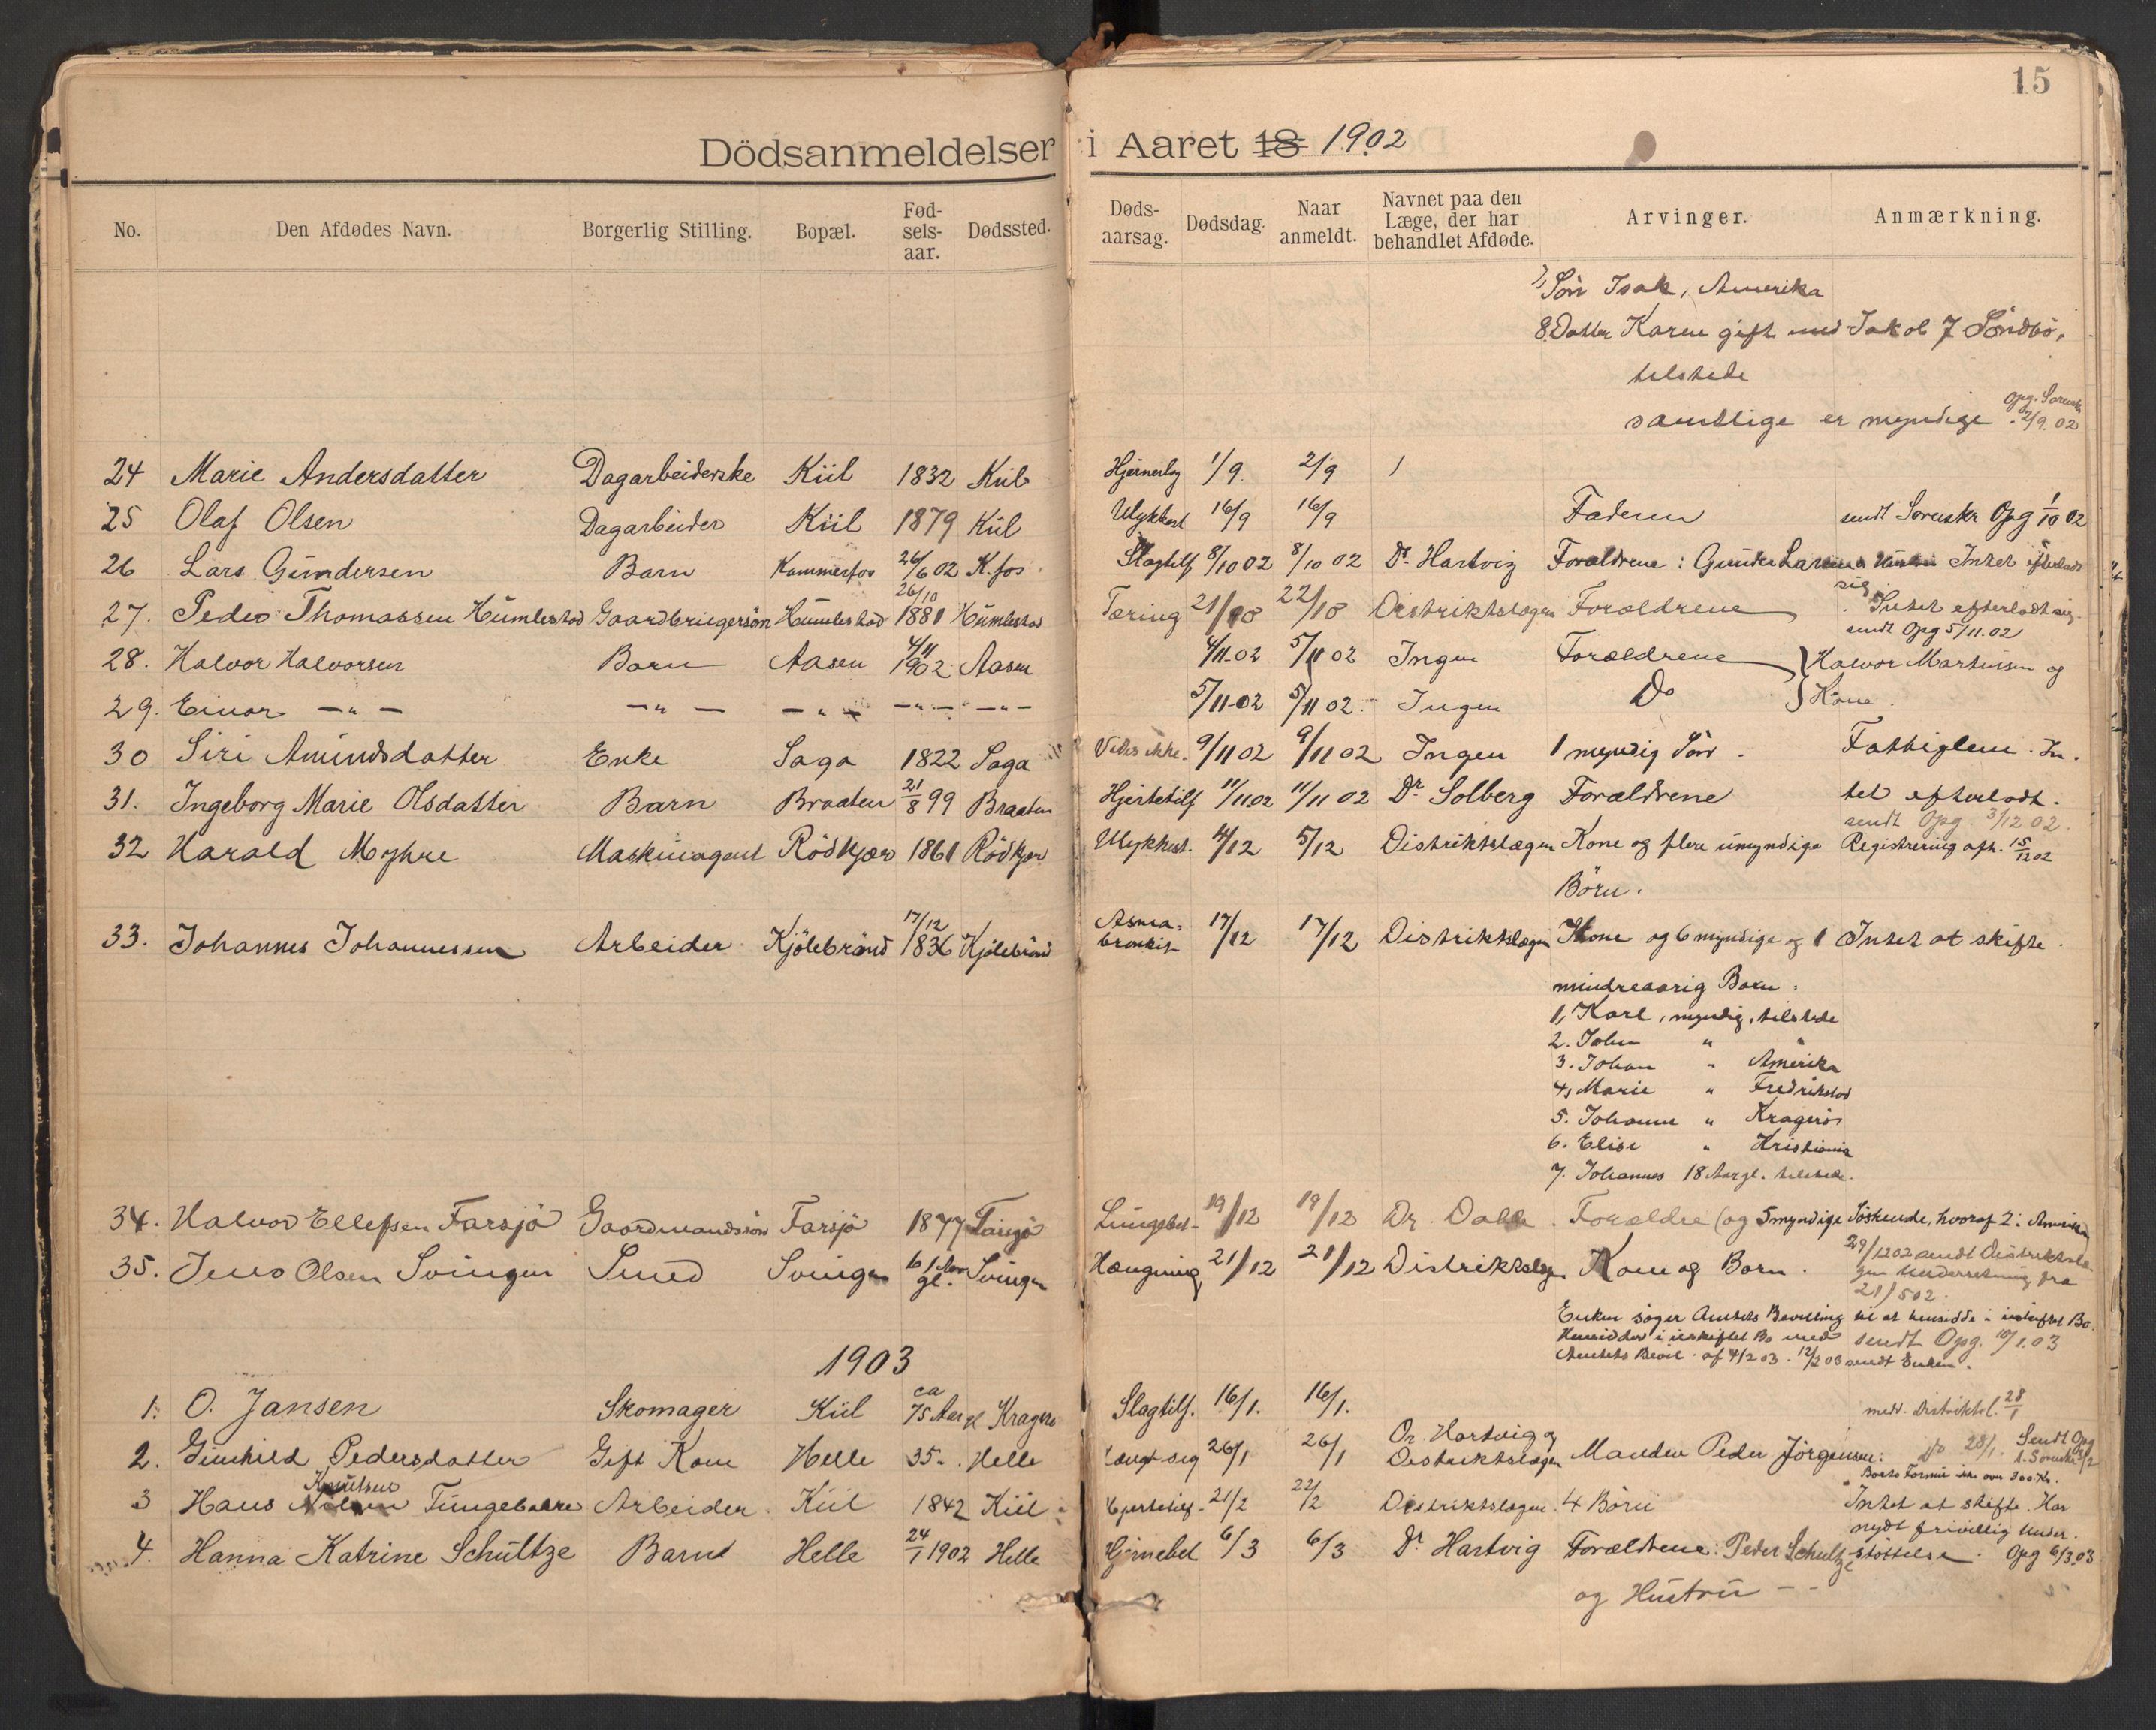 15
Dödsanmeldelser i Aaret 18 1902
No. Den Afdødes Navn. Borgerlig Stilling. Bopæl. Fød-sels-aar. Dødssted. Døds-aarsag. Dødsdag. Naar anmeldt. Navnet paa den Læge, der har behandlet Afdøde. Arvinger. Anmærkning.
7, Søn Isak, Amerika
8. Datter Karen gift med Jakob J Söndbö,
tilstede
samtlige er myndige. Opg. Sorenskr 2/9.02
24 Marie Andersdatter Dagarbeiderske Kiil 1832 Kiil Hjerneslag 1/9. 2/9 /
25 Olaf Olsen Dagarbeider Kiil 1879 Kiil Ulykkest 16/9 16/9 Faderen sendt Sorenskr Opg 1/10 02
26 Lars Gundersen Barn Kammerfos 26/6 02 K.fos Slagtilf 8/10 02 8/10 02 Dr. Hartvig Forældrene: Gunder Larsen Intet efterladt
sig
27. Peder Thomassen Humlestad Gaardbrugersøn Humlestad 26/10 1881 Humlestad Tæring 21/10 22/10 Distriktslægen Forældrene Intet efterladt sig.
sendt Opg 5/11.02
28. Halvor Halvorsen Barn Aasen 4/11 1902 Aasen 4/11.02 5/11 02 Ingen Forældrene } Halvor Martinsen og
29. Einar — " — — " — — " — — " — — " — 5/11.02 5/11 02. Ingen Do } Kone.
30 Siri Amundsdatter Enke Saga 1822 Saga Vides ikke. 9/11 02 9/11 02 Ingen 1 myndig Søn. Fattiglem. In-
31. Ingeborg Marie Olsdatter Barn Braaten 21/8 99 Braaten Hjertetilf 11/11 02 11/11 02 Dr Solberg Forældrene tet efterladt.
sendt Opg. 3/12 02.
32 Harald Myhre Maskinagent Rödkjær 1861 Rödkjær Ulykkest. 4/12 5/12 Distriktslægen Kone og flere umyndige Registrering afh. 15/12 02
Börn.
33. Johannes Johannessen Arbeider Kjölebrönd 17/12 1836 Kjölebrönd Asma-bronkit 17/12 17/12 Distriktslægen Kone og 6 myndige og 1 Intet at skifte.
mindreaarig Barn:
1, Karl, myndig, tilstede
2. John " "
3. Johan " Amerika
4, Marie " Fredrikstad
5. Johanne " Kragerö
6. Elise " Kristiania
7. Johannes 18 Aar gl. tilstede.
34. Halvor Ellefsen Farsjö Gaardmandssön Farsjö 1877 Farsjö Lungebet- 19/12 19/12 Dr. Dalle. Forældre (og 5 myndige Söskende, hvoraf 2 i Amerika)
35. Jens Olsen Svingen Smed Svingen 61 Aar gl. Svingen Hængning 21/12 21/12 Distriktslægen Kone og Barn. 29/12 02 sendt Distriktslæ-
gen Underretning fra
21/5 02.
Enken söger Amtets Bevilling til at hensidde i uskiftet Bo.
Hensidder i uskiftet Bo med sendt Opg. 10/1.03
Amtets Bevil. af 4/2 03. 12/2 03 sendt Enken.
1903
1. O. Jansen Skomager Kiil ca 75 Aar gl Kragerö Slagtilf. 16/1. 16/1. medd. Distriktsl. 28/1
2. Gunhild Pedersdatter Gift Kone Helle 35 Helle hængt sig 26/1 26/1 Dr. Hartvig og Distriktslægen Manden Peder Jörgensen: Do 28/1. Sendt Opg t. Sorenskr 3/2
Boets Formue ikke over 300 Kr.
3 Hans Knutsen Tungebakke Arbeider Kiil 1842 Kiil Hjertetilf- 21/2 22/2 Distriktslægen. 4 Börn Intet at skifte. Har
nydt frivillig Under-
4. Hanna Katrine Schultze Barn Helle 24/1 1902 Helle Hjernebet 6/3 6/3 Dr Hartvig Forældrene: Peder Schultze støttelse. Opg 6/3.03
og Hustru — -